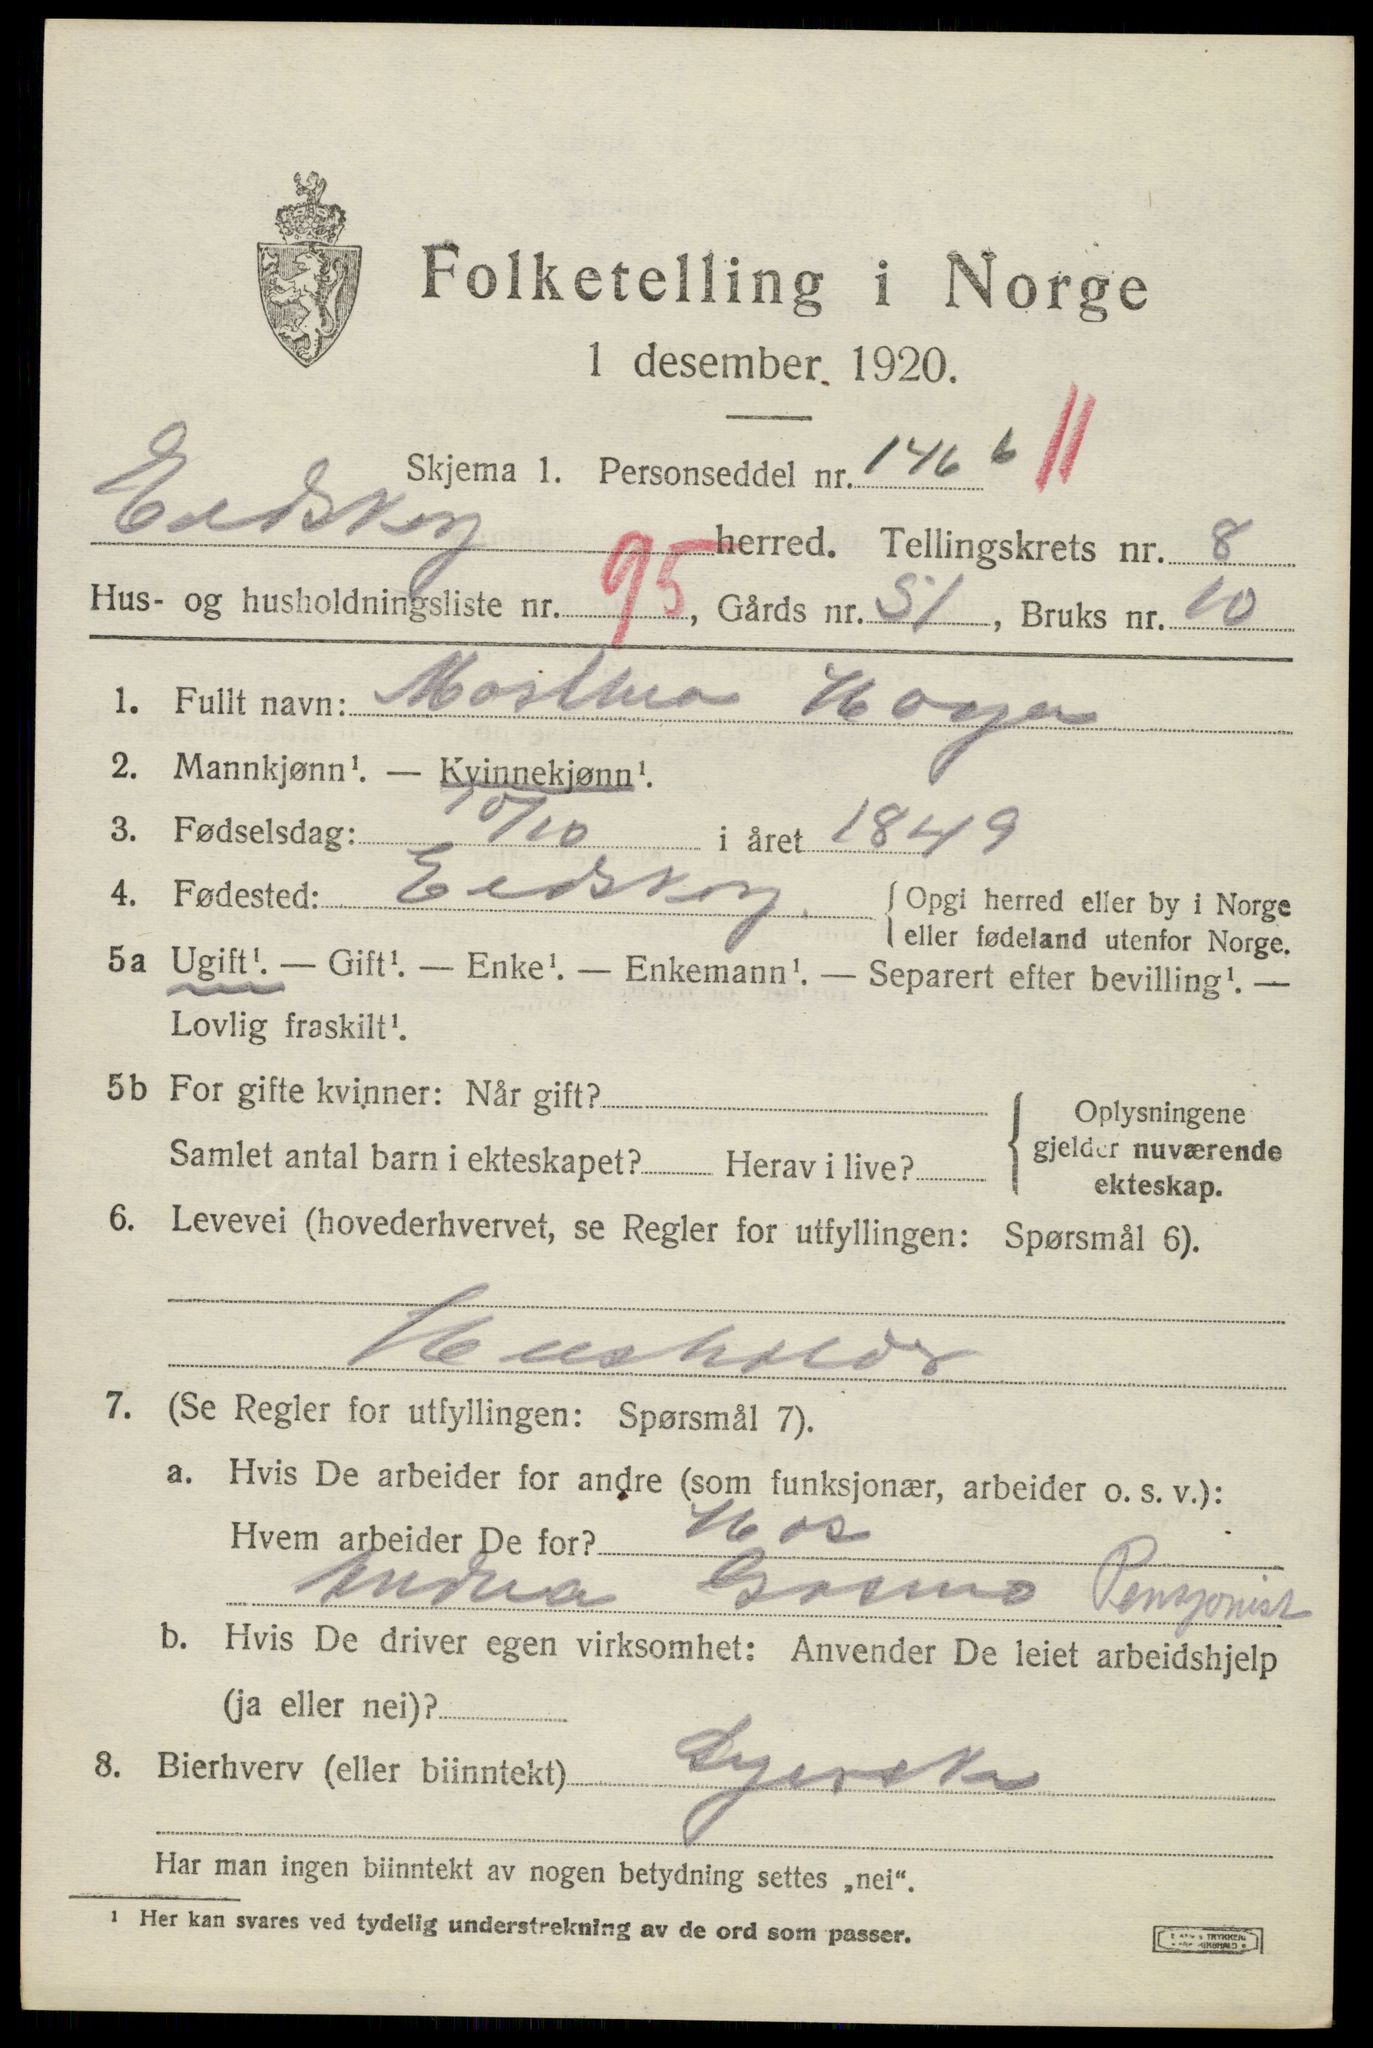 Folketelling i Norge
1 desember 1920.
Skjema 1. Personseddel nr. 146 b 11
Eidskog herred. Tellingskrets nr. 8
Hus- og husholdningsliste nr. 95, Gårds nr. 51, Bruks nr. 10
1. Fullt navn: Marthea Hagen
2. Mannkjønn¹. — Kvinnekjønn¹.
3. Fødselsdag: 10/10 i året 1849
4. Fødested: Eidskog. { Opgi herred eller by i Norge
{ eller fødeland utenfor Norge.
5a Ugift¹. — Gift¹. — Enke¹. — Enkemann¹. — Separert efter bevilling¹. —
Lovlig fraskilt¹.
5b For gifte kvinner: Når gift?
Samlet antal barn i ekteskapet? Herav i live?
{ Oplysningene
gjelder nuværende
ekteskap.
6. Levevei (hovederhvervet, se Regler for utfyllingen: Spørsmål 6).
Husholdr
7. (Se Regler for utfyllingen: Spørsmål 7).
a. Hvis De arbeider for andre (som funksjonær, arbeider o. s. v.):
Hvem arbeider De for? Hos
Andrea Pensjonist
b. Hvis De driver egen virksomhet: Anvender De leiet arbeidshjelp
(ja eller nei)?
8. Bierhverv (eller biinntekt) Syerske
Har man ingen biinntekt av nogen betydning settes „nei“.
¹ Her kan svares ved tydelig understrekning av de ord som passer.